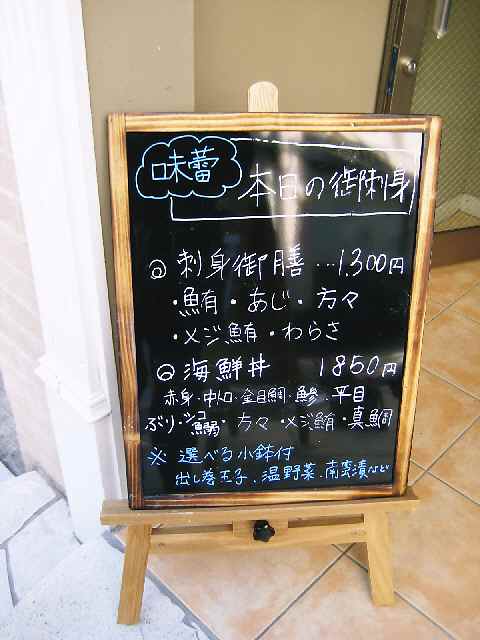 味蕾
本日の御刺身
◎ 刺身御膳 …1,300円
・鮪・あじ・方々
・メジ鮪・わらさ
◎ 海鮮丼 1850円
赤身・中トロ・金目鯛・鰺・平目
ぶり・シコ鰯・方々・メジ鮪・真鯛
※ 選べる小鉢付
出し巻玉子、温野菜、南蛮漬など